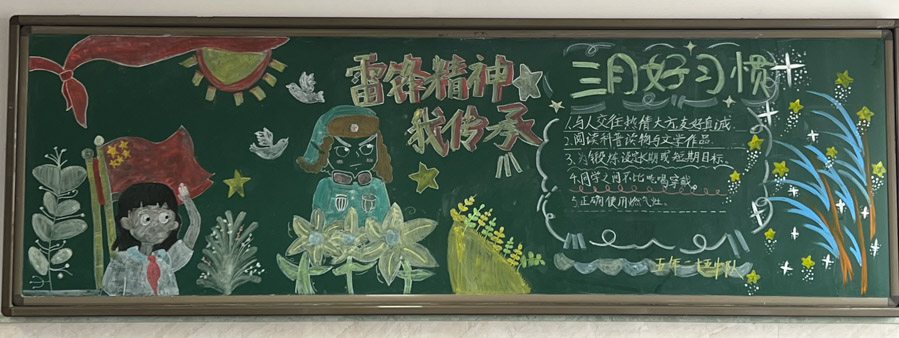 雷锋精神
我传承
三月好习惯
1.与人交往热情大方友好真诚.
2.阅读科普读物与文学作品.
3.为锻炼设定长期或短期目标.
4.同学之间不比吃喝穿戴.
5.正确使用燃气灶.
五年二班中队